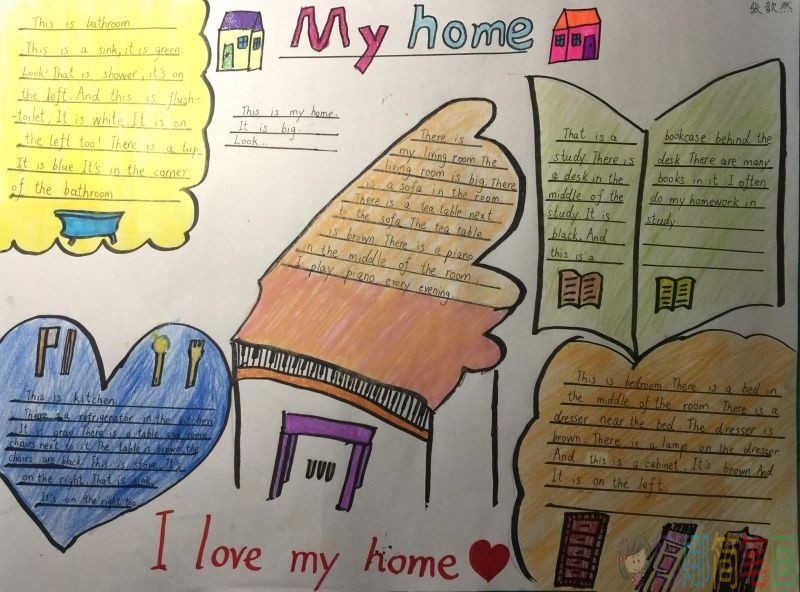 My home
张歆然
This is bathroom.
This is a sink, it is green.
Look! That is shower, it's on
the left. And this is flush-
-toilet, It is white. It is on
the left too! There is a tup.
It is blue. It's in the corner
of the bathroom
This is my home.
It is big.
Look...
There is
my living room. The
living room is big. There
is a sofa in the room.
There is a tea table next
to the sofa. The tea table
is brown. There is a piano
in the middle of the room.
I play piano every evening.
That is a
study. There is
a desk in the
middle of the
study. It is
black. And
this is a
bookcase behind the
desk. There are many
books in it. I often
do my homework in
study.
This is kitchen
There is a refrigecrator in the kitchen
It is gray. There is a table and some
chairs next to it. The table is brown. the
chairs are black. This is stove. It's
on the right. That is sink.
It's on the right too.
This is bedroom. There is a bed in
the middle of the room. There is a
dresser near the bed. The dresser is
brown. There is a lamp on the dresser
And this is a cabinet. It's brown. And
It is on the left.
I love my home
简笔画